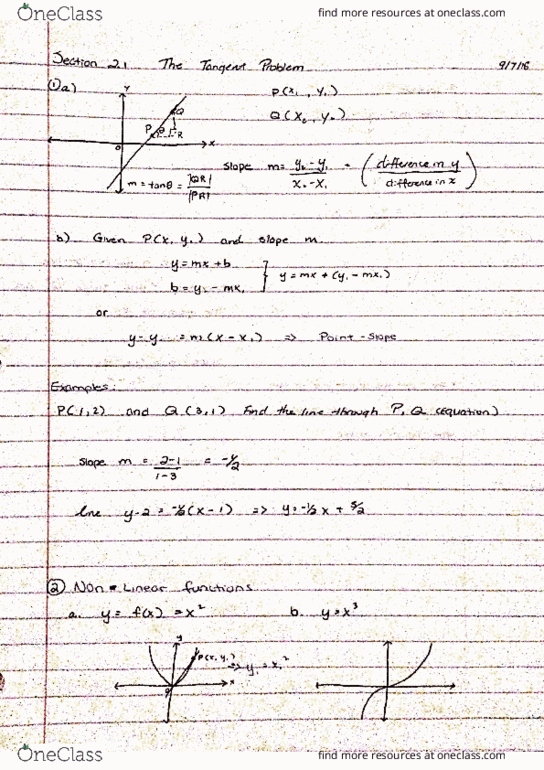 OneClass
find more resources at oneclass.com
Section 2.1 The Tangent Problem 9/7/16
① a)
y
P(x₁, y₁)
Q(x₀, y₀)
P θ Q R
0 x
slope m = y₀ - y₁ / x₀ - x₁ = (difference in y / difference in x)
m = tanθ = |QR| / |PR|
b) Given P(x, y,) and slope m.
y = mx + b
b = y₁ - mx₁
} y = mx + (y₁ - mx₁)
or
y - y₁ = m(x - x₁) => Point-Slope
Examples:
P(1,2) and Q(3,1) Find the line through P, Q (equation)
slope m = 2-1 / 1-3 = -1/2
line y-2 = -1/2(x-1) => y = -1/2 x + 5/2
② Non-Linear functions
a. y = f(x) = x² b. y = x³
y
P(x₁, y₁)
=> y₁ = x₁²
0 x
OneClass
find more resources at oneclass.com